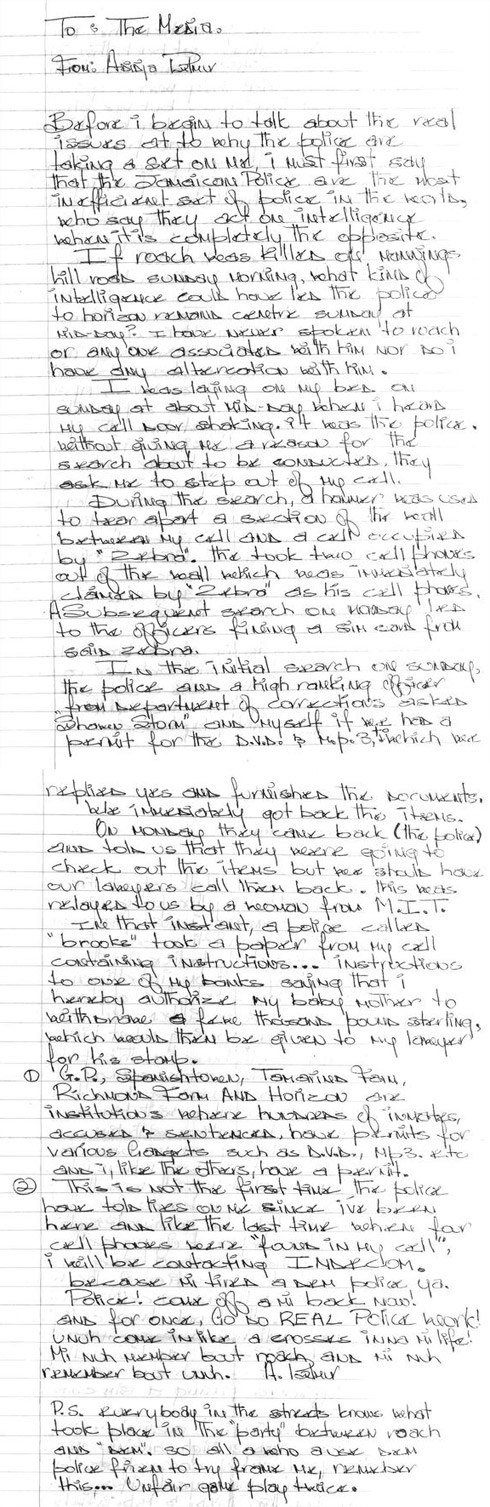 To : The Media.
From: Adidja Palmer
Before i begin to talk about the real
issues at to why the police are
taking a set on me, i must first say
that the Jamaican Police are the most
inefficient set of police in the world,
who say they act on intelligence
when it is completely the opposite.
If roach was killed on Mannings
hill road sunday morning, what kind of
intelligence could have led the police
to horizon remand centre sunday at
mid-day? I have never spoken to roach
or any one associated with him nor do i
have any altercation with him.
I was laying on my bed on
sunday at about mid-day when i heard
my cell door shaking. it was the police.
without giving me a reason for the
search about to be conducted, they
ask me to step out of my cell.
During the search, a hammer was used
to tear apart a section of the wall
between my cell and a cell occupied
by "Zebra". the took two cell phones
out of the wall which was immediately
claimed by "Zebra" as his cell phones.
A Subsequent search on monday lead
to the officers finding a sim card from
said zebra.
In the initial search on sunday,
the police and a high ranking officer
from Department of corrections asked
"Shawn Storm" and myself if we had a
permit for the D.V.D. & M.p.3, which we
replied yes and furnished the documents.
We immediately got back the items.
On monday they came back (the police)
and told us that they were going to
check out the items but we should have
our lawyers call them back. this was
relayed to us by a woman from M.I.T.
In that instant, a police called
"brooks" took a paper from my cell
containing instructions... instructions
to one of my banks saying that i
hereby authorize my baby mother to
withdraw a few thousand pound sterling,
which would then be given to my lawyer
for his stamp.
① G.P., Spanishtown, Tamarind Farm,
Richmond Farm And Horizon are
institutions where hundreds of inmates,
accused & sentenced, have permits for
various Gadgets such as D.V.D., Mp3. etc
and i, like the others, have a permit.
② This is not the first time the police
have told lies on me since ive been
here and like the last time when four
cell phones were "found in my cell",
i will be contacting INDECOM.
because mi tired a dem police ya.
Police! come off a mi back now!
and for once, GO DO REAL Police work!
unuh come in like a crosses inna mi life!
Mi nuh member bout roach, and mi nuh
remember bout unuh. A. Palmer
P.S. everybody in the streets know what
took place in "the party" between roach
and "dem". so all a who a use dem
police friend to try frame me, remember
this... Unfair game play twice.